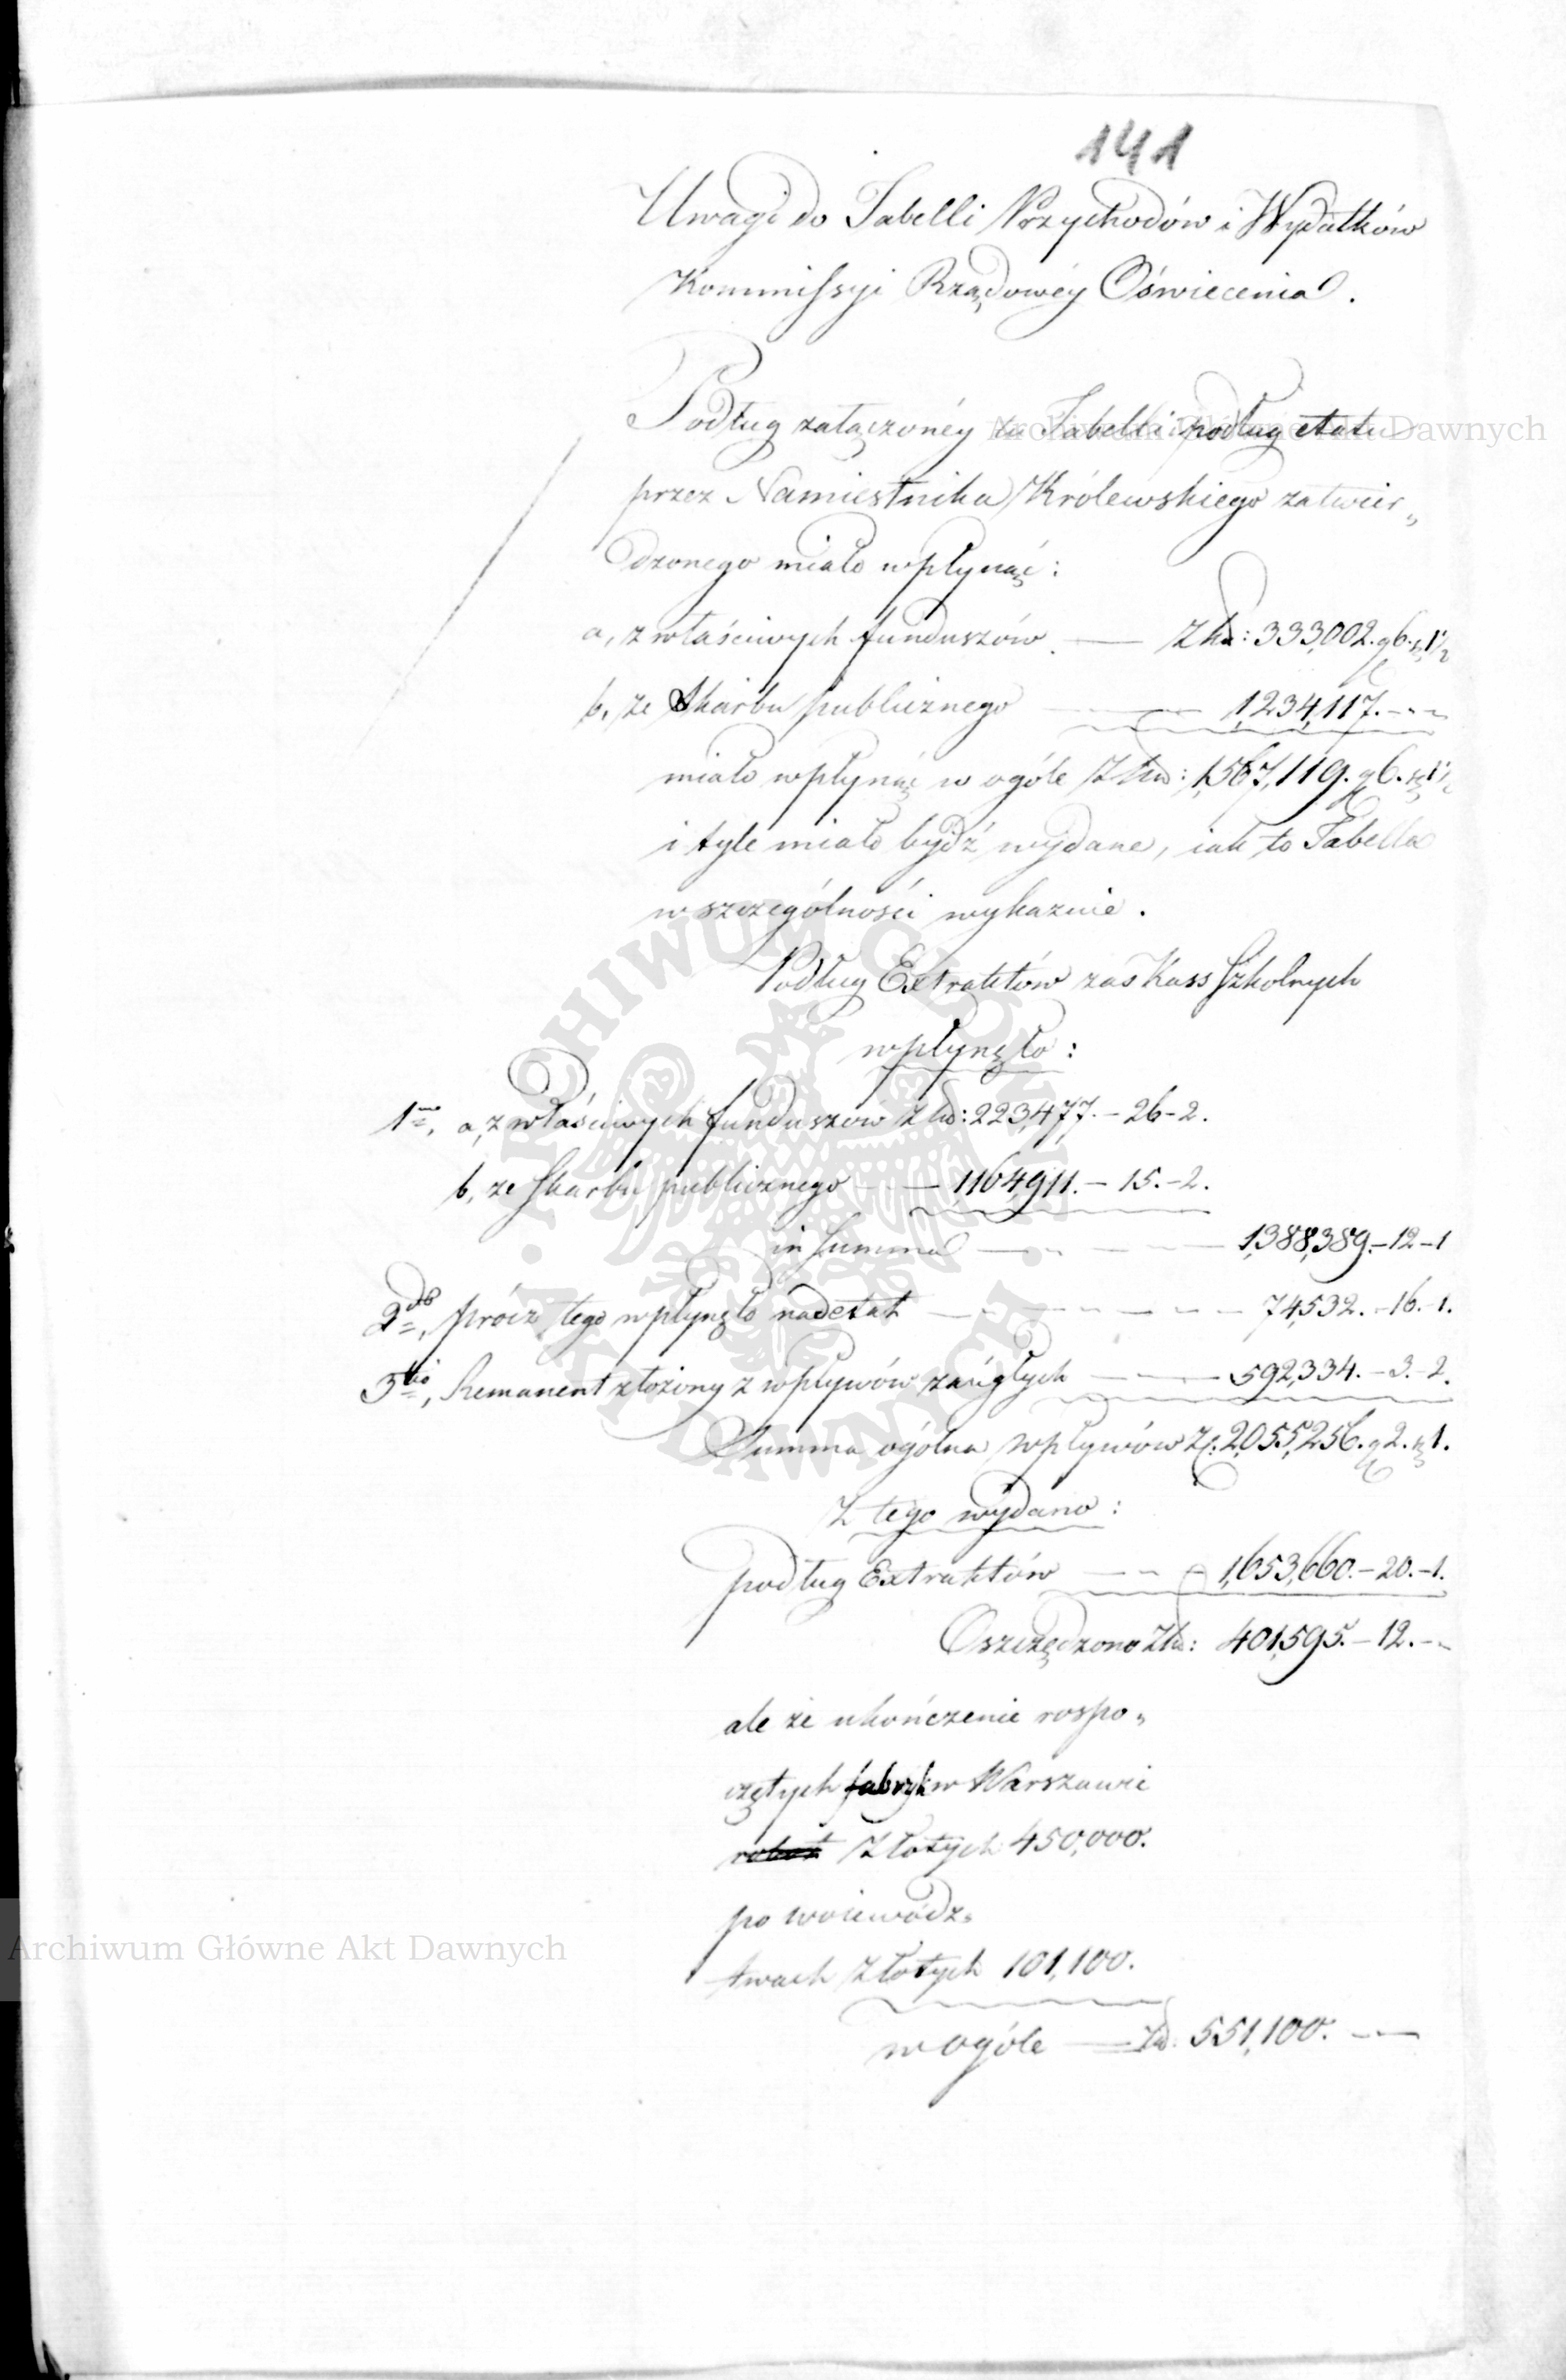 141
Uwagi do Tabelli Przychodów i Wydatków
Kommissyi Rządowéy Oświecenia.
Podług załączonéy tu Tabelli podług etatu
przez Namiestnika Królewskiego zatwier„
dzonego miało wpłynąć:
a, z właściwych funduszów — Złł: 333,002. g 6. sz 1½
b, ze Skarbu publicznego — 1,234,117. - -
miało wpłynąć w ogóle Złł: 1,567,119. g 6. sz 1½
i tyle miało bydź wydane, iak to Tabella
w szczególności wykazuie.
Podług Extraktów zaś Kass Szkolnych
wpłynęło:
1mo, a, z właściwych funduszów Złł: 223,477. - 26 - 2.
b, ze Skarbu publicznego — 1,164,911. - 15. - 2.
in Summa — 1,388,389. - 12 - 1
2do, prócz tego wpłynęło nad etat — 74,532. - 16. - 1.
3tio, Remanent złożony z wpływów zaległych — 592,334. - 3. - 2.
Summa ogólna wpływów Zł: 2,055,256. g 2. sz 1.
Z tego wydano:
podług Extraktów — 1,653,660. - 20. - 1.
Oszczędzono Złł: 401,595. - 12. -
ale że ukończenie rospo„
czętych fabryk w Warszawie
Złotych 450,000.
po woiewódz„
twach Złotych 101,100.
w ogóle — Złł: 551,100. —
Archiwum Główne Akt Dawnych
Archiwum Główne Akt Dawnych
ARCHIWUM GŁÓWNE · AKT DAWNYCH ·